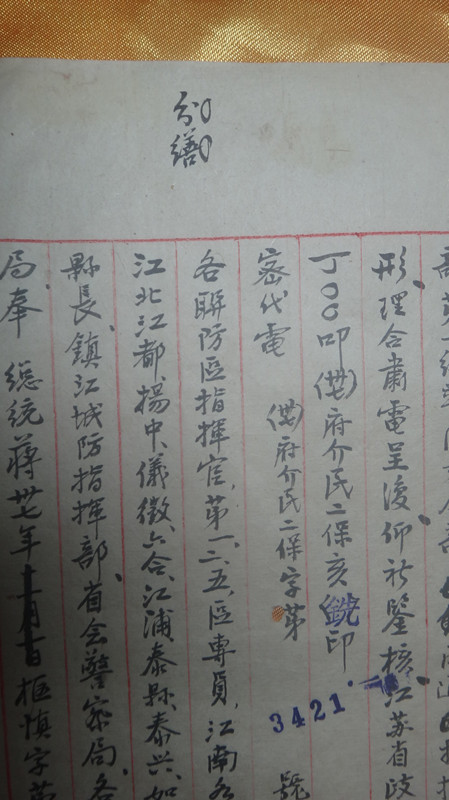 別繕
形，理合肅電呈復，仰祈鑒核。江苏省政
丁〇〇叩(卅)府介民二保亥(銑)印
密代電　(卅)府介民二保字第3421號
各聯防區指揮官，第一、二、五、區專員，江南各
江北江都、揚中、儀徵、六合、江浦、泰縣、泰兴、如
縣長、鎮江城防指揮部、省会警察局、各
局，奉　總統蔣卅七年 樞慎字第